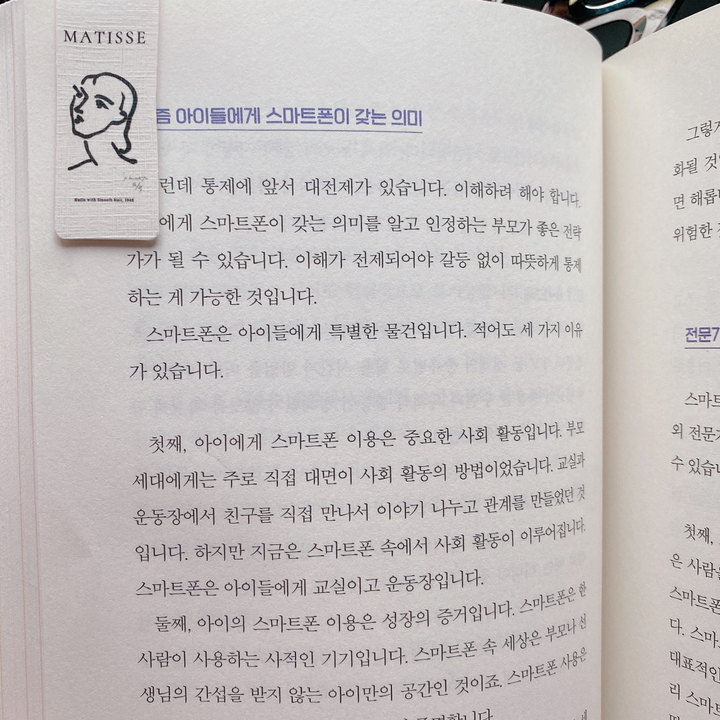 MATISSE
즘 아이들에게 스마트폰이 갖는 의미
런데 통제에 앞서 대전제가 있습니다. 이해하려 해야 합니다.
에게 스마트폰이 갖는 의미를 알고 인정하는 부모가 좋은 전략
가가 될 수 있습니다. 이해가 전제되어야 갈등 없이 따뜻하게 통제
하는 게 가능한 것입니다.
스마트폰은 아이들에게 특별한 물건입니다. 적어도 세 가지 이유
가 있습니다.
첫째, 아이에게 스마트폰 이용은 중요한 사회 활동입니다. 부모
세대에게는 주로 직접 대면이 사회 활동의 방법이었습니다. 교실과
운동장에서 친구를 직접 만나서 이야기 나누고 관계를 만들었던 것
입니다. 하지만 지금은 스마트폰 속에서 사회 활동이 이루어집니다.
스마트폰은 아이들에게 교실이고 운동장입니다.
둘째, 아이의 스마트폰 이용은 성장의 증거입니다. 스마트폰은 한
사람이 사용하는 사적인 기기입니다. 스마트폰 속 세상은 부모나 선
생님의 간섭을 받지 않는 아이만의 공간인 것이죠. 스마트폰 사용은
그렇게
화될 것
면 해롭
위험한
전문가
스마트
외 전문가
수 있습니
첫째,
은 사람
스마트폰
다. 스마
대표적인
리 스마트